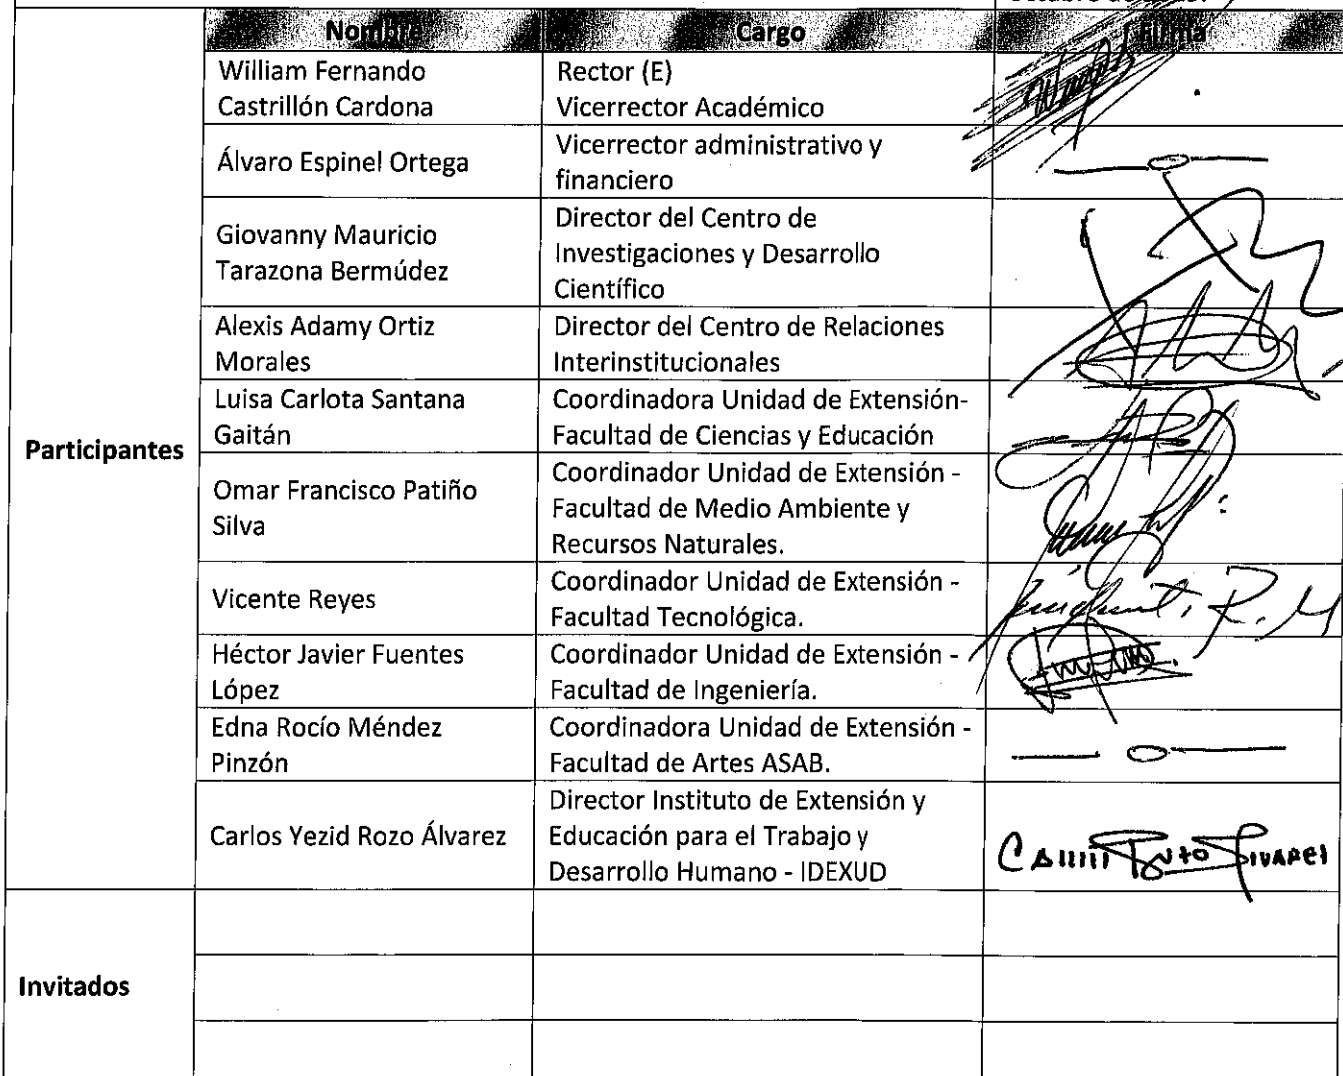 Nombre Cargo Firma
William Fernando
Castrillón Cardona
Rector (E)
Vicerrector Académico
Álvaro Espinel Ortega
Vicerrector administrativo y
financiero
Giovanny Mauricio
Tarazona Bermúdez
Director del Centro de
Investigaciones y Desarrollo
Científico
Alexis Adamy Ortiz
Morales
Director del Centro de Relaciones
Interinstitucionales
Participantes
Luisa Carlota Santana
Gaitán
Coordinadora Unidad de Extensión-
Facultad de Ciencias y Educación
Omar Francisco Patiño
Silva
Coordinador Unidad de Extensión -
Facultad de Medio Ambiente y
Recursos Naturales.
Vicente Reyes
Coordinador Unidad de Extensión -
Facultad Tecnológica.
Héctor Javier Fuentes
López
Coordinador Unidad de Extensión -
Facultad de Ingeniería.
Edna Rocío Méndez
Pinzón
Coordinadora Unidad de Extensión -
Facultad de Artes ASAB.
Carlos Yezid Rozo Álvarez
Director Instituto de Extensión y
Educación para el Trabajo y
Desarrollo Humano - IDEXUD
Invitados